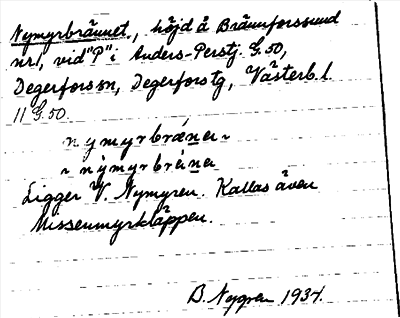 Nymyrbrännet, höjd å Brännforssund
nr1, vid "P" i Anders-Perstj. G.50,
Degerforssn, Degerforstg, Västerb.l.
11 G.50.
nymyrbrǽna
nỳmyrbrèna
Ligger V. Nymyren. Kallas även
Missenmyrkläppen.
B. Nygren 1934.